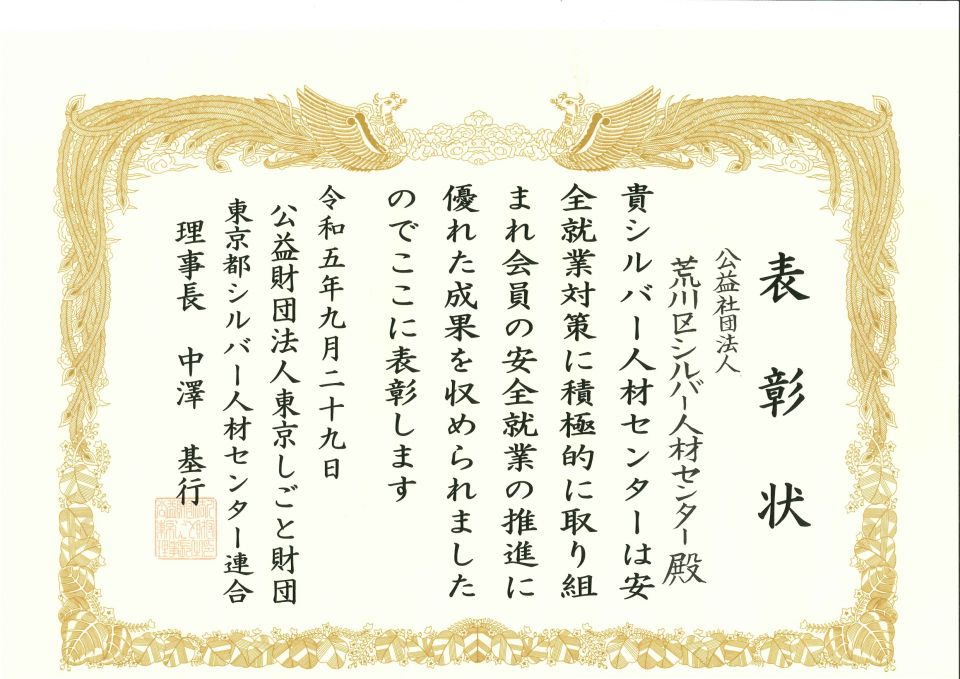 表彰状
公益社団法人
荒川区シルバー人材センター殿
貴シルバー人材センターは安
全就業対策に積極的に取り組
まれ会員の安全就業の推進に
優れた成果を収められました
のでここに表彰します
令和五年九月二十九日
公益財団法人東京しごと財団
東京都シルバー人材センター連合
理事長 中澤 基行